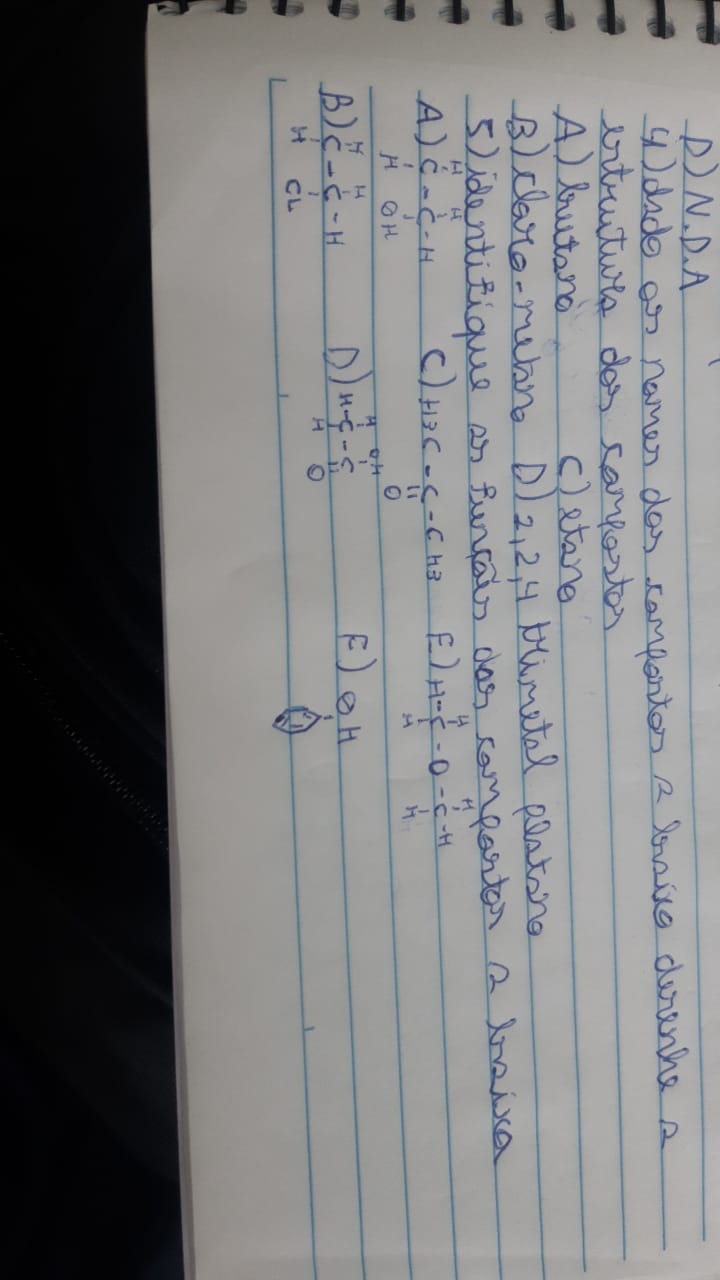 D) N.D.A
4) dado os nomes dos compostos a baixo desenhe a
estrutura dos compostos
A) butano C) etano
B) cloro-metano D) 2,2,4 trimetal pentano
5) identifique as funções dos compostos a baixa
H H H H
A) C-C-H C) H3C-C-CH3 E) H-C-O-C-H
H OH O H H
H H H OH
B) C-C-H D) H-C-C E) OH
H CL H O